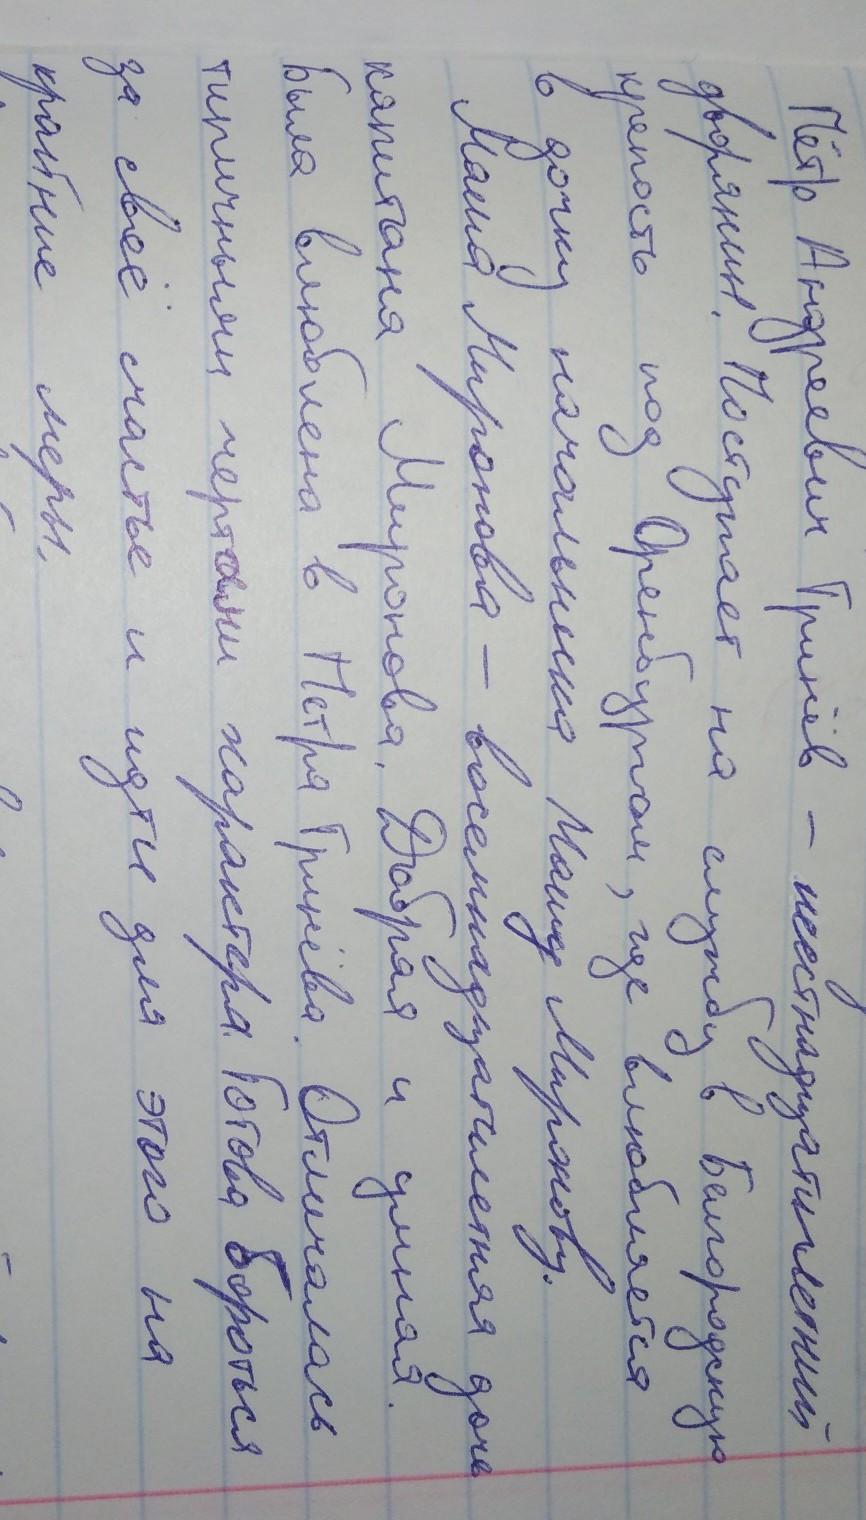 Пётр Андреевич Гринёв – шестнадцатилетний
дворянин. Поступает на службу в Белгородскую
крепость под Оренбургом, где влюбляется
в дочку начальника Машу Миронову.
Маша Миронова – восемнадцатилетняя дочь
капитана Миронова. Добрая и умная.
Была влюблена в Петра Гринёва. Отличалась
типичными чертами характера. Готова бороться
за своё счастье и идти для этого на
крайние меры.